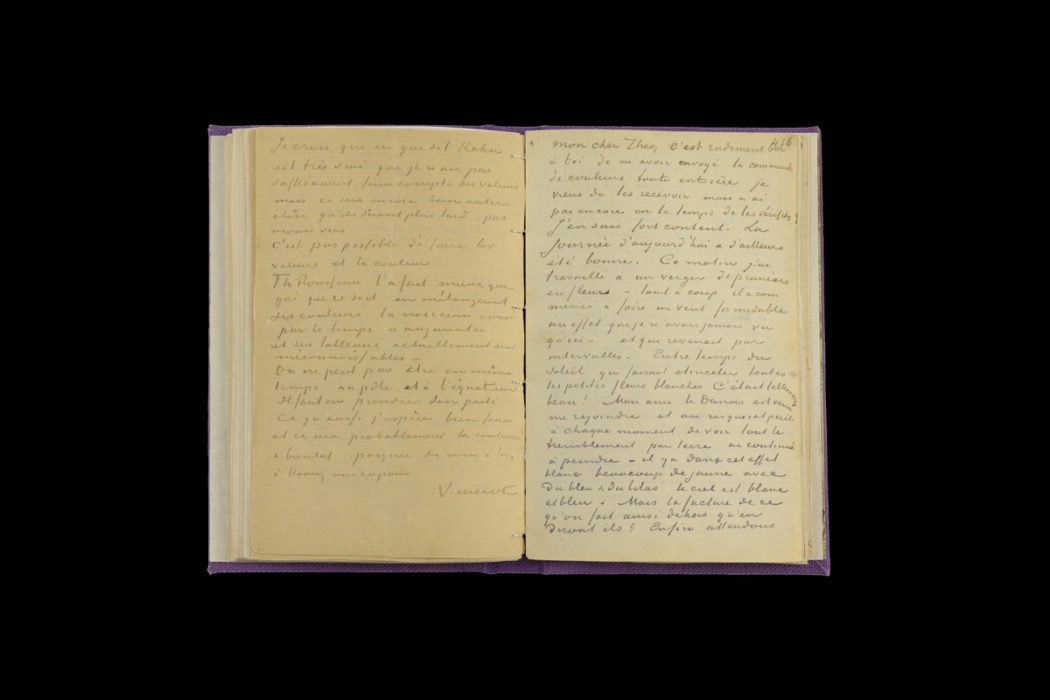 Je crois que ce que dit Kahn
est très vrai que je n'ai pas
suffisament tenu compte des valeurs
mais ce sera encore bien autre
chose qu'ils diront plus tard - pas
moins vrai
C'est pas possible de faire les
valeurs et la couleur
Th Rousseau l'a fait mieux que
qui que ce soit en mélangeant
ses couleurs la noirceur
par le temps a augmentée
et ses tableaux actuellement sont
méconnaissables -
On ne peut pas etre en même
temps au pôle et à l'équateur
Il faut en prendre son parti
Ce qu'aussi j'espère bien faire
et ce sera probablement la couleur
à bientot poignée de main à toi,
à Koning aux copains
Vincent
mon cher Theo, c'est rudement bon
à toi de m'avoir envoyé la commande
de couleurs toute entière je
viens de les recevoir mais n'ai
pas encore eu le temps de les vérifier
J'en suis fort content. La
journée d'aujourd'hui a d'ailleurs
été bonne. Ce matin j'ai
travaillé à un verger de pruniers
en fleurs - tout à coup il a com
mencé à faire un vent formidable
un effet que je n'avais jamais vu
qu'ici - et que revenait par
intervalles. Entre temps du
soleil qui faisait etinceler toutes
les petites fleurs blanches C'était tellement
beau! Mon ami le Danois est venu
me rejoindre et au risque et péril
à chaque moment de voir tout le
tremblement par terre ai continué
à peindre - il y a dans cet effet
blanc beaucoup de jaune avec
du bleu & du lilas le ciel est blanc
et bleu. Mais la facture de ce
qu'on fait ainsi dehors qu'en
diront ils! Enfin attendons